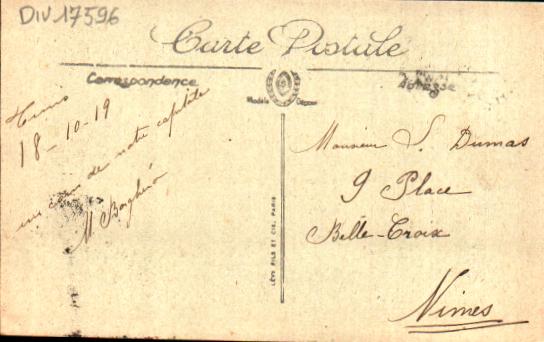 DIV17596
Carte Postale
Correspondence
Adresse
Modèle Déposé
18-10-19
un coin de notre capitale
M
Monsieur S. Dumas
9 Place
Belle-Croix
Nimes
LÉVY FILS ET CIE, PARIS